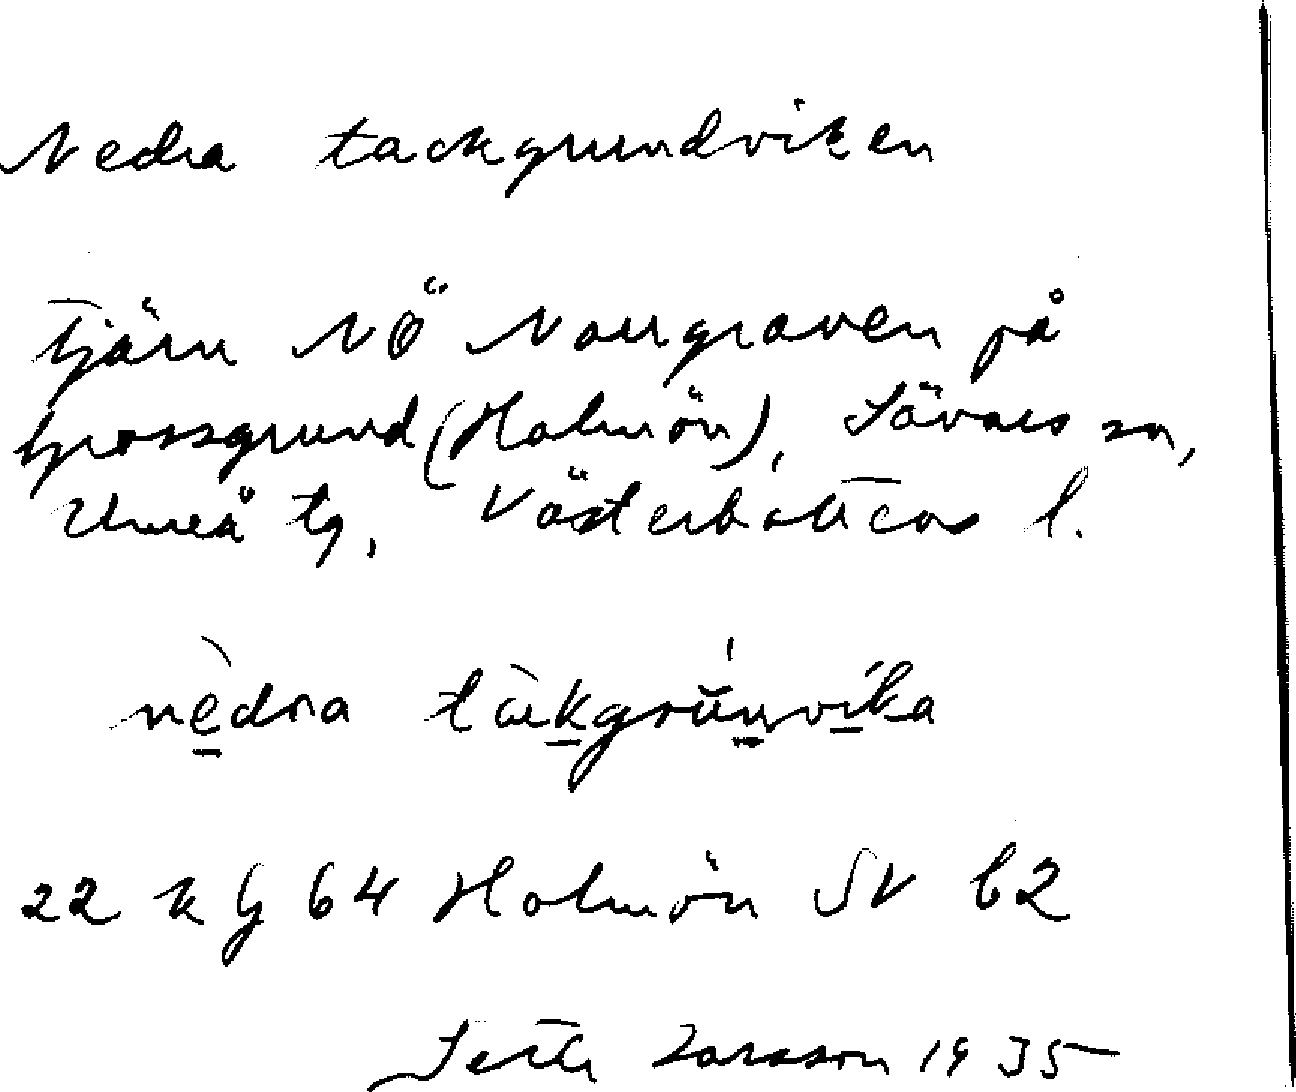 Nedra tackgrundviken
Tjärn NÖ Norrgraven på
Grossgrund (Holmön), Sävars sn,
Umeå tg, Västerbottens l.
nedra
22 k G 64 Holmön SV b2
Larsson 1935